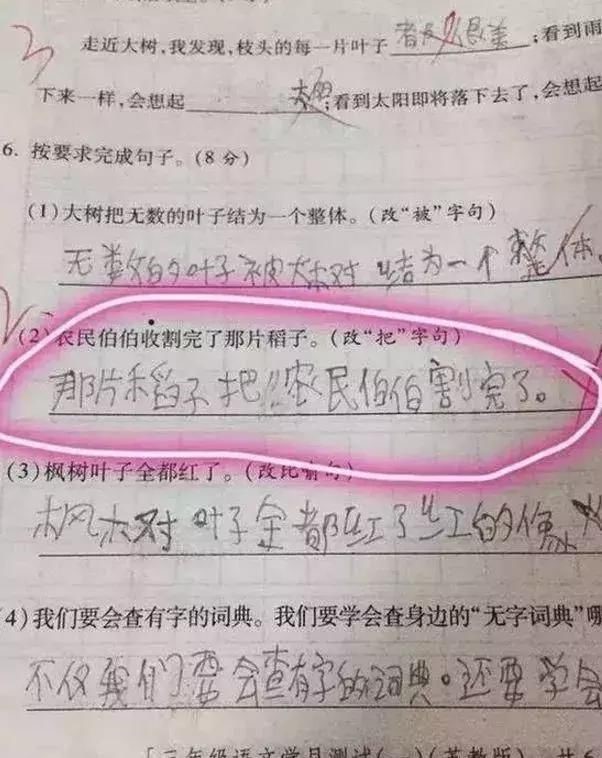 走近大树,我发现,枝头的每一片叶子 都很美 ;看到雨
下来一样,会想起 ;看到太阳即将落下去了,会想起
6. 按要求完成句子。(8分)
(1)大树把无数的叶子结为一个整体。(改“被”字句)
无数的叶子被大树结为一个整体。
(2)农民伯伯收割完了那片稻子。(改“把”字句)
那片稻子把农民伯伯割完了。
(3)枫树叶子全都红了。(改比喻句)
枫树叶子全都红了红的像火
(4)我们要会查有字的词典。我们要学会查身边的“无字词典”哪
不仅我们要会查有字的词典。还要学会
三年级语文学月测试(一)(苏教版) 共6